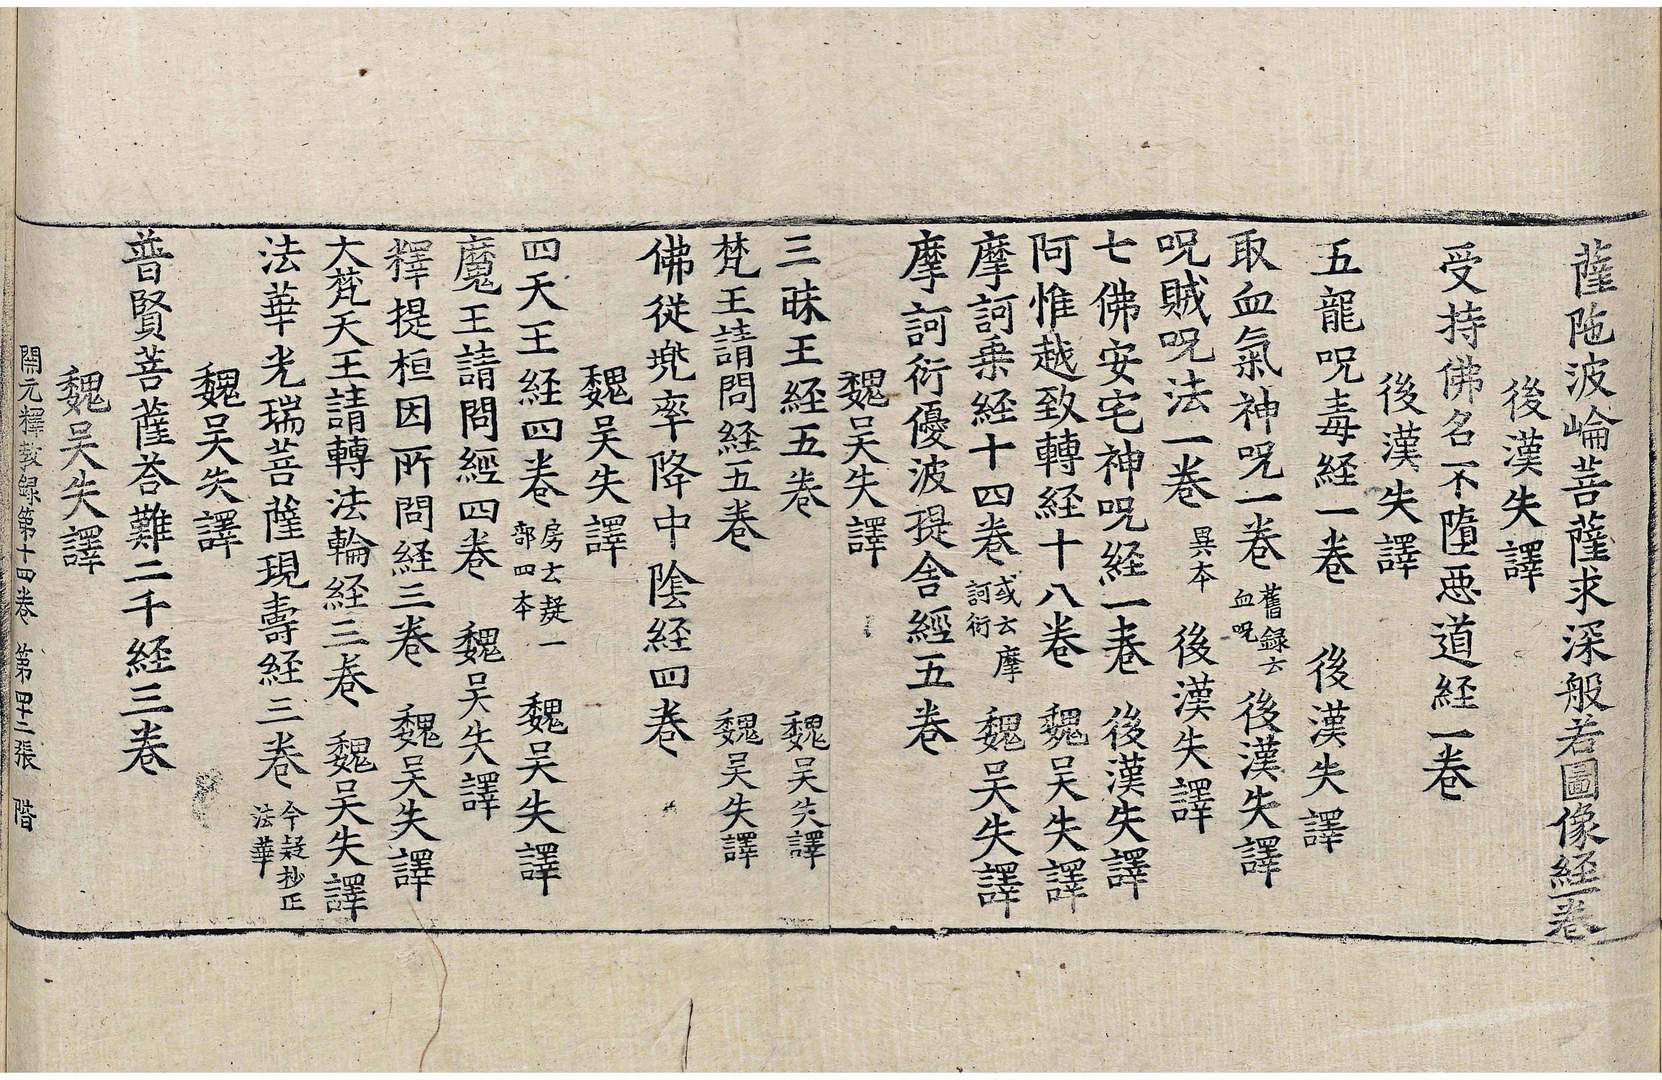 薩陁波崘菩薩求深般若圖像経一卷
後漢失譯
受持佛名不墮惡道経一卷
後漢失譯
五龍呪毒経一卷 後漢失譯
取血氣神呪一卷 舊録云血呪 後漢失譯
呪賊呪法一卷 異本 後漢失譯
七佛安宅神呪経一卷 後漢失譯
阿惟越致轉経十八卷 魏吴失譯
摩訶乗経十四卷 或云摩訶衍 魏吴失譯
摩訶衍優波提舍經五卷
魏吴失譯
三昧王経五卷 魏吴失譯
梵王請問経五卷 魏吴失譯
佛從兠率降中隂経四卷
魏吴失譯
四天王経四卷 房云疑一部四本 魏吴失譯
魔王請問經四卷 魏吴失譯
釋提桓因所問経三卷 魏吴失譯
大梵天王請轉法輪経三卷 魏吴失譯
法華光瑞菩薩現壽経三卷 今疑抄正法華
魏吴失譯
普賢菩薩荅難二千経三卷
魏吴失譯
開元釋教録第十四卷 第四十二張 階